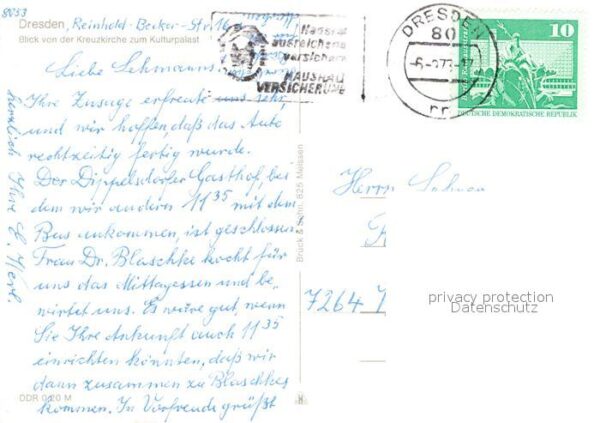 8053
Dresden, Reinhold-Becker-Str. 16
Blick von der Kreuzkirche zum Kulturpalast
Liebe Lehmanns,
Ihre Zusage erfreute uns sehr
und wir hoffen, daß das Auto
rechtzeitig fertig wurde.
Der Dippelsdorfer Gasthof, bei
dem wir anderen 11 35 mit dem
Bus ankommen, ist geschlossen.
Frau Dr. Blaschke kocht für
uns das Mittagessen und be,
wirtet uns. Es wäre gut, wenn
Sie Ihre Ankunft auch 11 35
einrichten könnten, daß wir
dann zusammen zu Blaschkes
kommen. In Vorfreude grüßt
herzlich Ihre
DDR 0,20 M
Brück & Sohn, 825 Meissen
Hausrat
ausreichend
versichern
HAUSHALT
VERSICHERUNG
DRESDEN
80
10
DEUTSCHE DEMOKRATISCHE REPUBLIK
Herrn
7264
privacy protection
Datenschutz